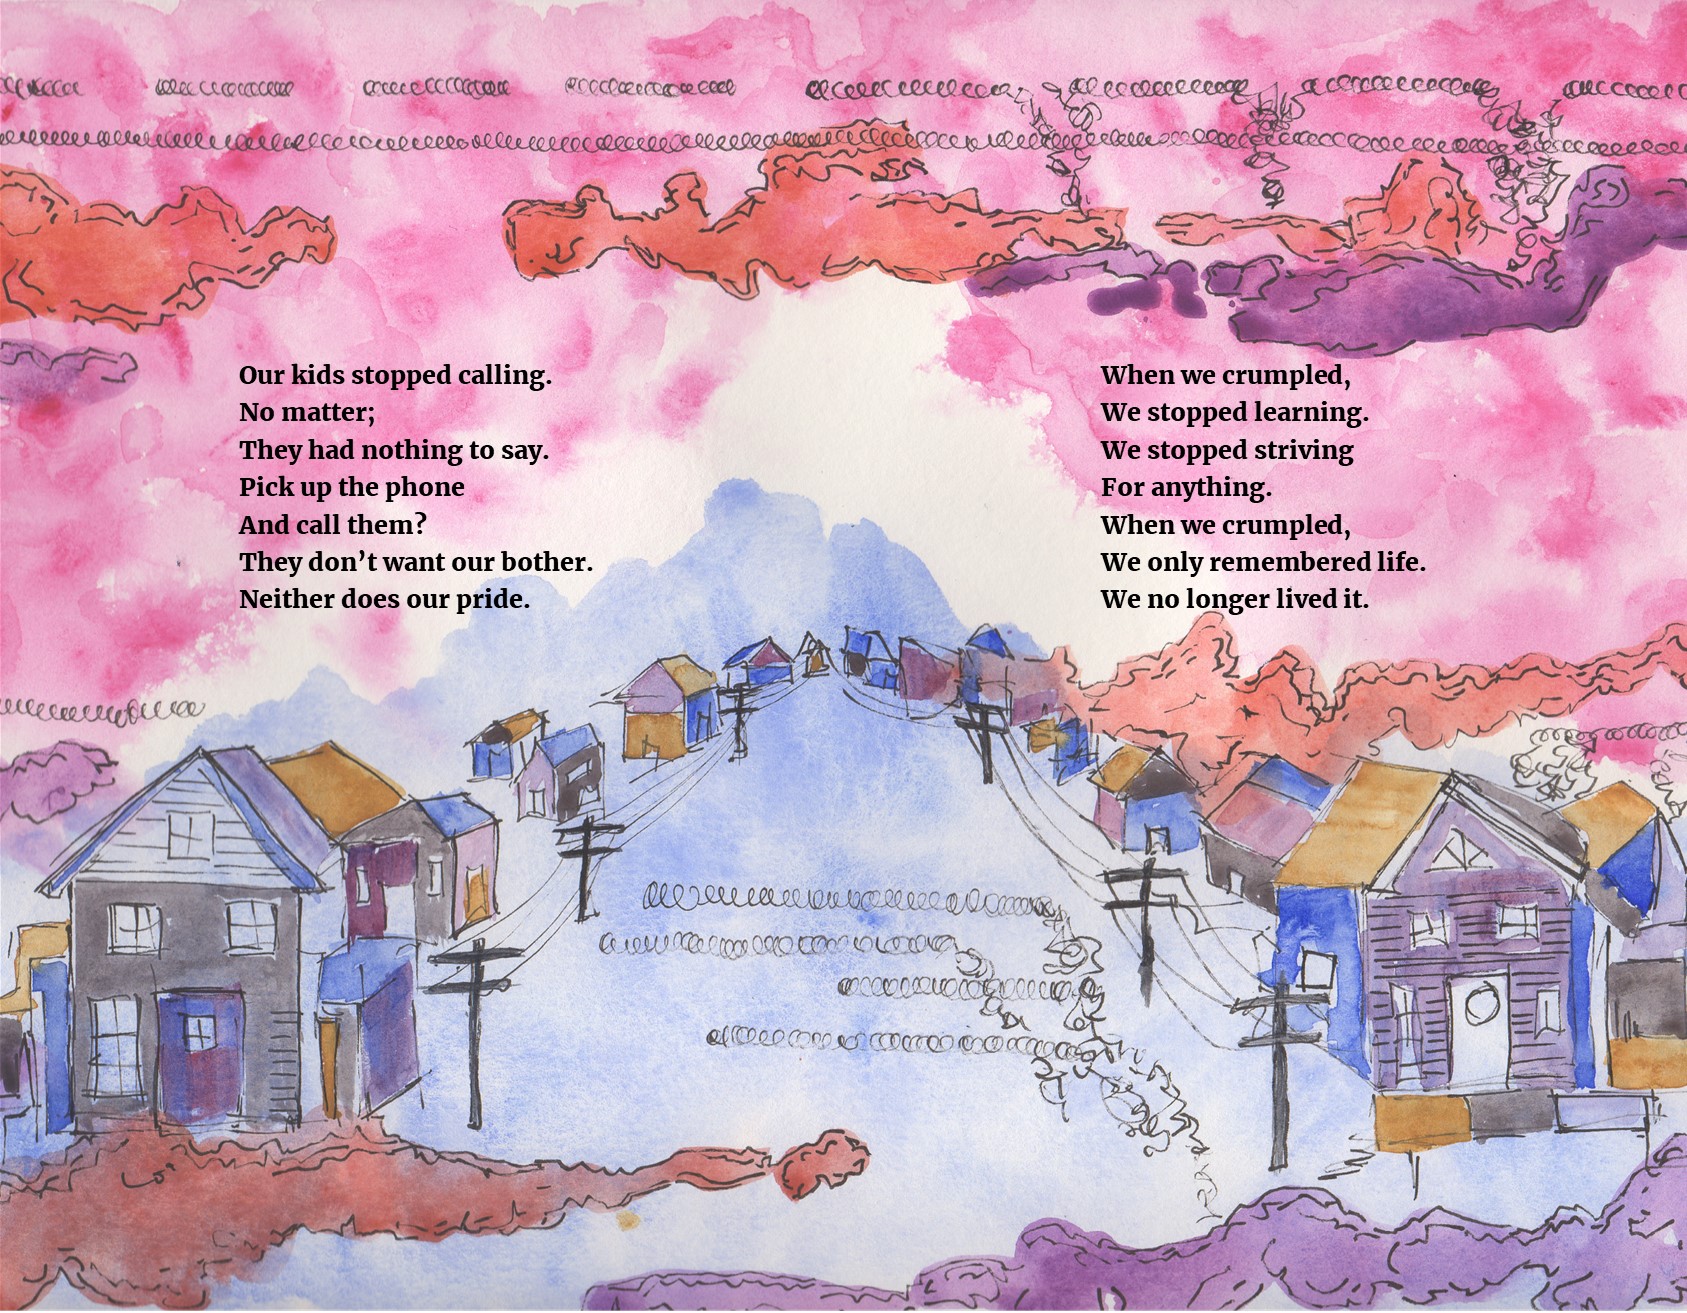 Our kids stopped calling.
No matter;
They had nothing to say.
Pick up the phone
And call them?
They don’t want our bother.
Neither does our pride.
When we crumpled,
We stopped learning.
We stopped striving
For anything.
When we crumpled,
We only remembered life.
We no longer lived it.